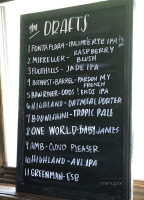 THE DRAFTS
1 FONTA FLORA-
IPA
2 MIKKELLER- RASPBERRY
BLUSH
3 FOOTHILLS-JADE IPA
4 BOTANIST+BARREL-PARDON MY
FRENCH
5 ENDS IPA
6 HIGHLAND-OATMEAL PORTER
7 TROPIC PALE
8 ONE WORLD-BABY JAMES
9 AMB-CLOUD PLEASER
10 HIGHLAND-AVL IPA
11 GREENMAN-ESB